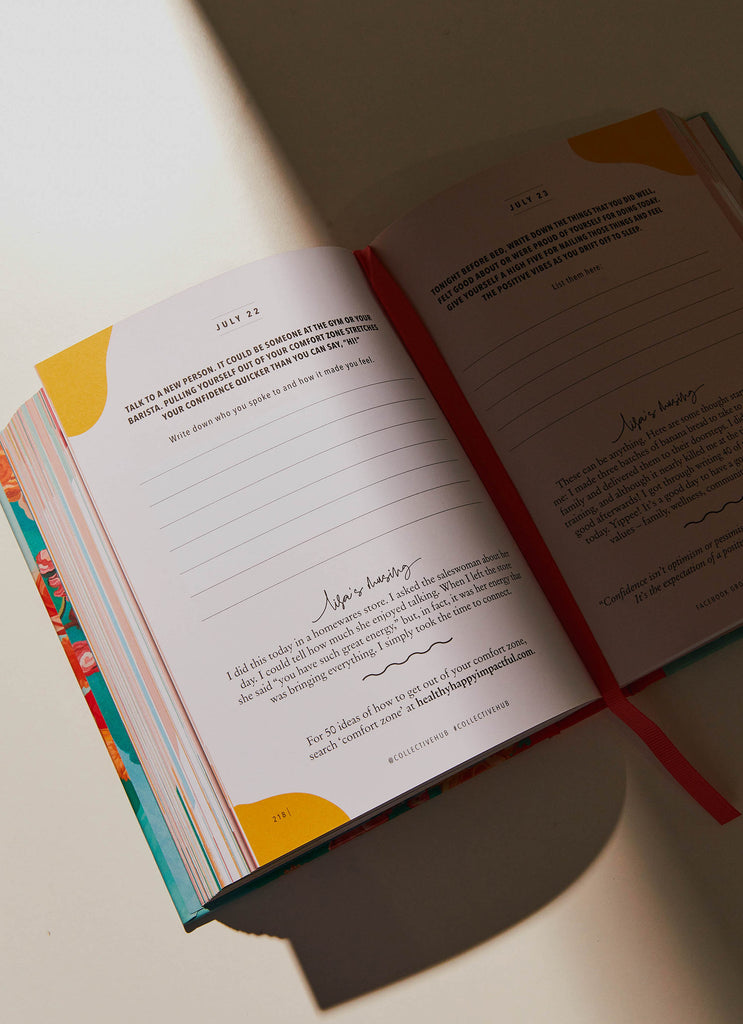 JULY 22
TALK TO A NEW PERSON. IT COULD BE SOMEONE AT THE GYM OR YOUR
BARISTA. PULLING YOURSELF OUT OF YOUR COMFORT ZONE STRETCHES
YOUR CONFIDENCE QUICKER THAN YOU CAN SAY, "HI!"
Write down who you spoke to and how it made you feel.
lisa's musing
I did this today in a homewares store. I asked the saleswoman about her
day. I could tell how much she enjoyed talking. When I left the store
she said "you have such great energy," but, in fact, it was her energy that
was bringing everything. I simply took the time to connect.
For 50 ideas of how to get out of your comfort zone,
search 'comfort zone' at healthyhappyimpactful.com.
@COLLECTIVEHUB #COLLECTIVEHUB
218 |
JULY 23
TONIGHT BEFORE BED, WRITE DOWN THE THINGS THAT YOU DID WELL,
FELT GOOD ABOUT OR WERE PROUD OF YOURSELF FOR DOING TODAY.
GIVE YOURSELF A HIGH FIVE FOR NAILING THOSE THINGS AND FEEL
THE POSITIVE VIBES AS YOU DRIFT OFF TO SLEEP.
List them here:
lisa's musing
These can be anything. Here are some thought
me: I made three batches of banana bread to take to
family and delivered them to their doorsteps. I did
training, and although it nearly killed me at the
good afterwards! I got through writing 40 of
today. Yippee! It's a good day to have a
values – family, wellness,
"Confidence isn't optimism or
It's the expectation of a
FACEBOOK